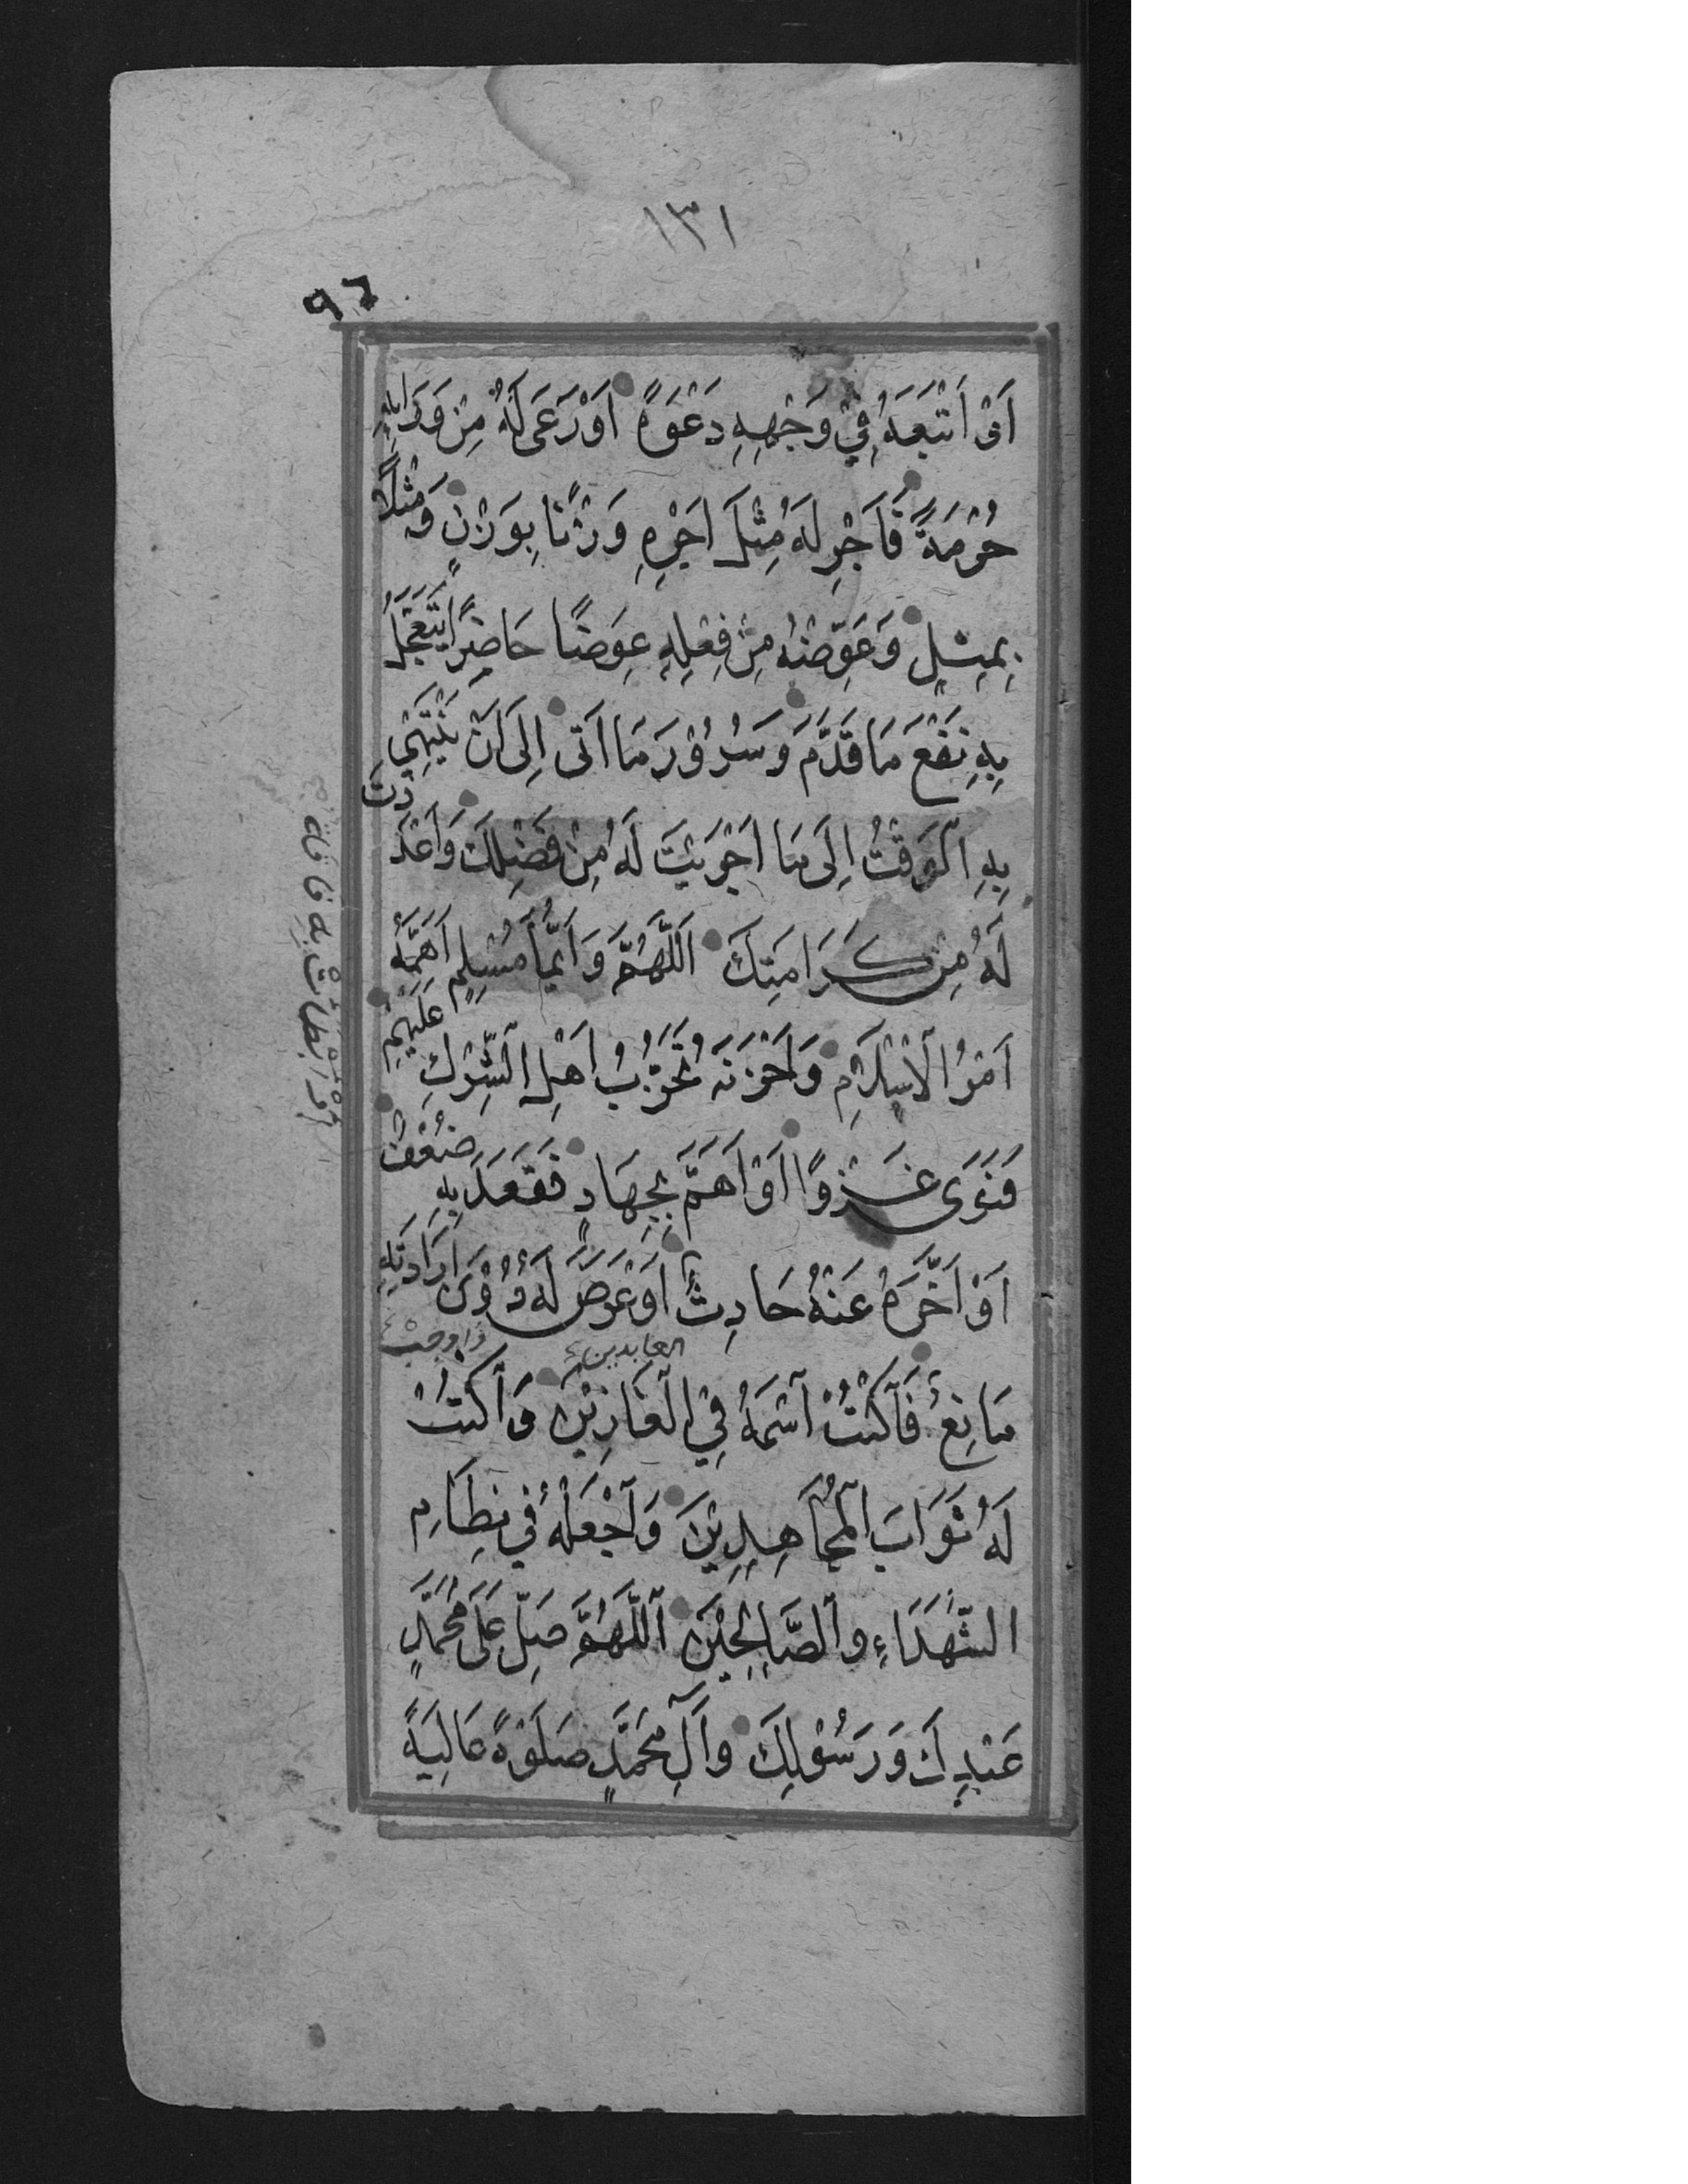 ١٣١
٩٦
اَوْ اَتْبَعَهُ فِيْ وَجْهِهِ دَعْوَةً اَوْ رَعَى لَهُ مِنْ وَرَائِهِ
حُرْمَةً فَاَجْرِ لَهُ مِثْلَ اَجْرِهِ وَزْنًا بِوَزْنٍ وَمِثْلًا
بِمِثْلٍ وَعَوِّضْهُ مِنْ فِعْلِهِ عِوَضًا حَاضِرًا يَتَعَجَّلُ
بِهِ نَفْعَ مَا قَدَّمَ وَسُرُوْرَ مَا اَتٰى اِلَى اَنْ يَنْتَهِيَ
بِهِ الْوَقْتُ اِلَى مَا اَجْرَيْتَ لَهُ مِنْ فَضْلِكَ وَاَعْدَدْتَ
لَهُ مِنْ كَرَامَتِكَ اَللّٰهُمَّ وَاَيُّمَا مُسْلِمٍ اَهَمَّهُ
اَمْرُ الْاِسْلَامِ وَاَحْزَنَهُ تَحَزُّبُ اَهْلِ الشِّرْكِ عَلَيْهِمْ
فَنَوَى غَزْوًا اَوْ اَهَمَّ بِجِهَادٍ فَقَعَدَ بِهِ ضَعْفٌ
اَوْ اَبْطَاَتْ بِهِ فَاقَةٌ
اَوْ اَخَّرَهُ عَنْهُ حَادِثٌ اَوْ عَرَضَ لَهُ دُوْنَ اِرَادَتِهِ
العابدين
واوجب
مَانِعٌ فَاكْتُبْ اسْمَهُ فِي الْغَازِيْنَ وَاكْتُبْ
لَهُ ثَوَابَ الْمُجَاهِدِيْنَ وَاجْعَلْهُ فِي نِظَامِ
الشُّهَدَاءِ وَالصَّالِحِيْنَ اَللّٰهُمَّ صَلِّ عَلَى مُحَمَّدٍ
عَبْدِكَ وَرَسُوْلِكَ وَآلِ مُحَمَّدٍ صَلَوٰةً عَالِيَةً